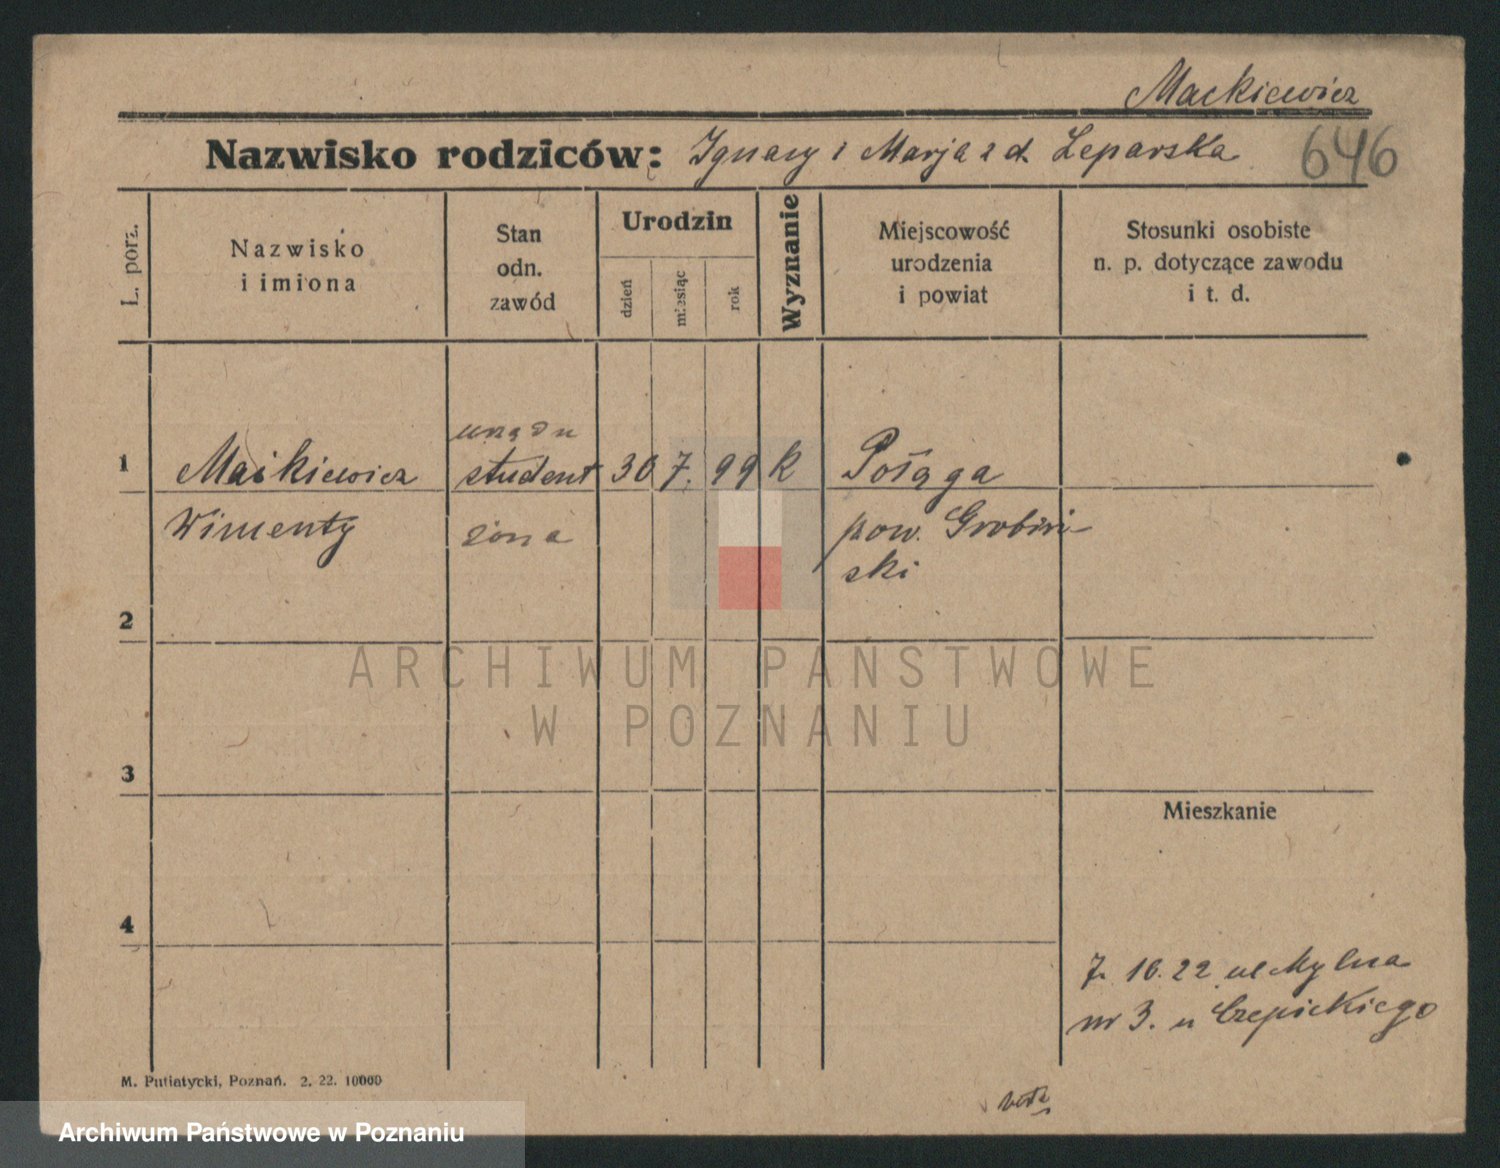 Mackiewicz
Nazwisko rodziców: Ignacy i Marja z d. Leparska 646
L. porz.
Nazwisko
i imiona
Stan
odn.
zawód
Urodzin
dzień
miesiąc
rok
Wyznanie
Miejscowość
urodzenia
i powiat
Stosunki osobiste
n. p. dotyczące zawodu
i t. d.
1
Mackiewicz
Wimenty
student
żona
30 7. 99 k
Połąga
pow. Grobiń
ski
2
3
4
Mieszkanie
7. 10. 22 ul Mylna
nr 3. u Czepickiego
M. Putiatycki, Poznań. 2. 22. 10000
ARCHIWUM PAŃSTWOWE
W POZNANIU
Archiwum Państwowe w Poznaniu